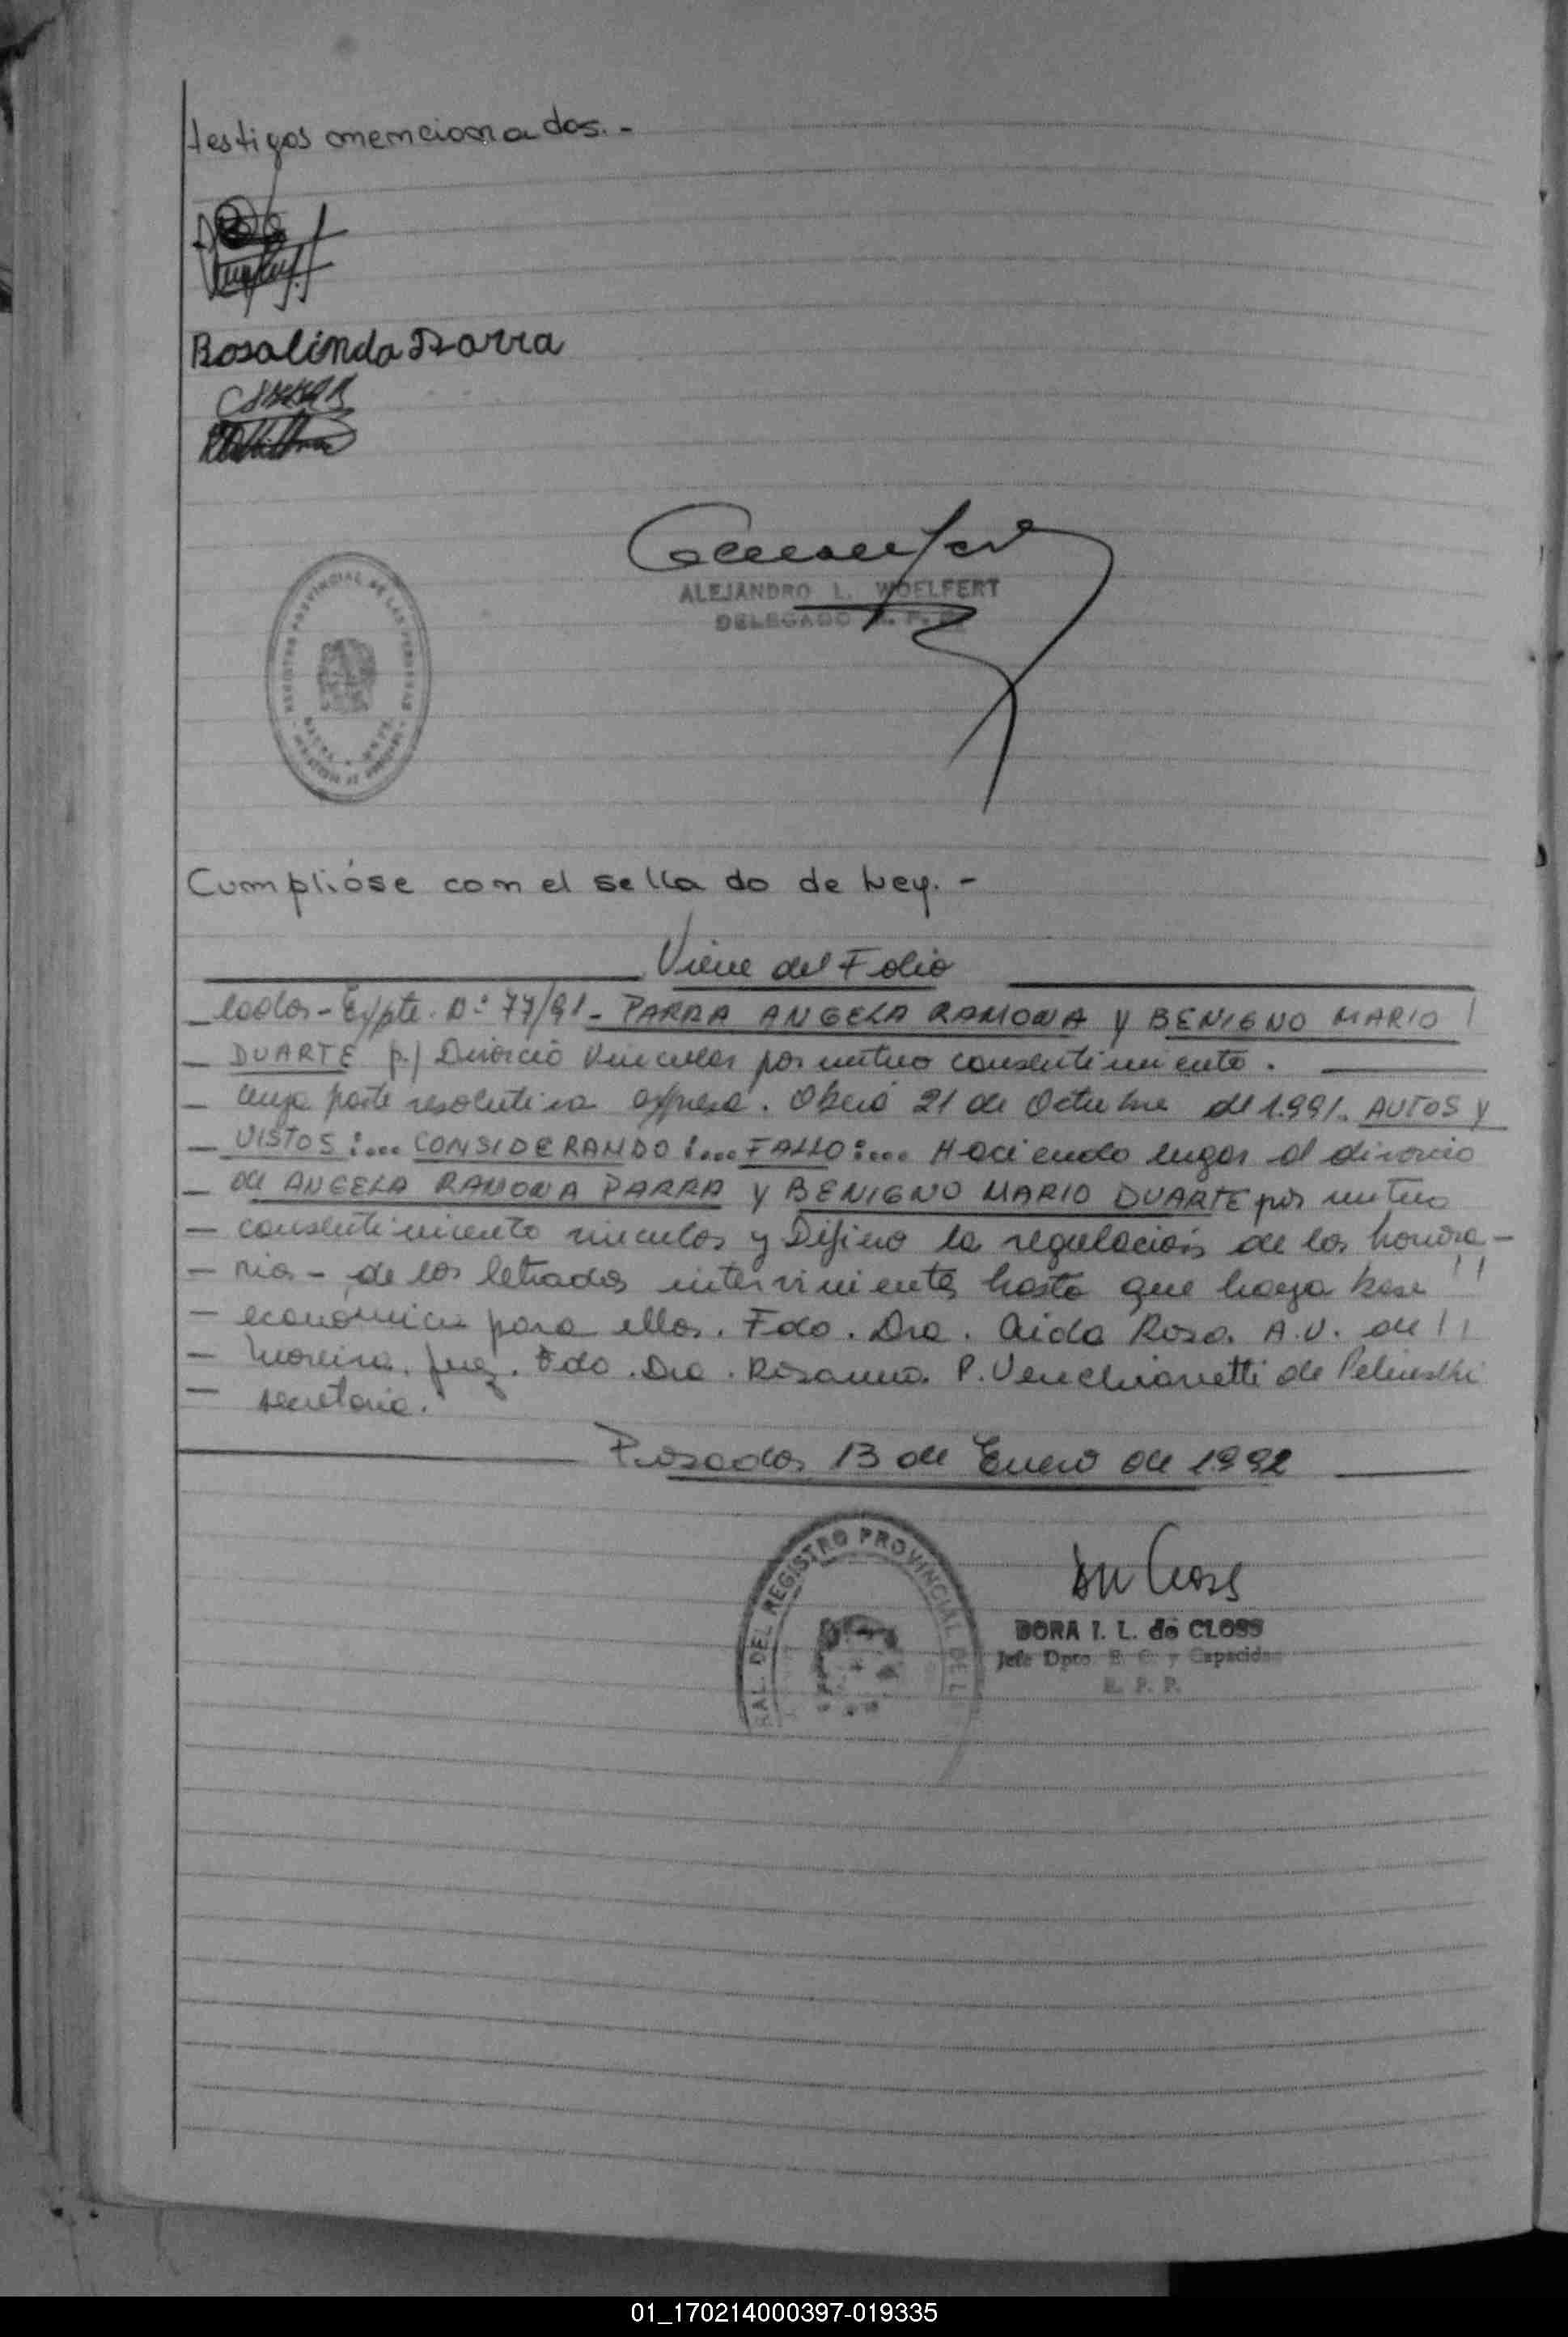 testigos mencionados.-
Rosalinda Ibarra
ALEJANDRO L. WOELFERT
DELEGADO R. P. P.
REGISTRO PROVINCIAL DE LAS PERSONAS
Cumplióse con el sellado de Ley.-
Viene del Folio
lados - Expte. Nº 77/91 - PARRA ANGELA RAMONA y BENIGNO MARIO
DUARTE p/ Divorcio Vincular por mutuo consentimiento.
cuya parte resolutiva expresa. Oberá 21 de Octubre de 1.991. AUTOS Y
VISTOS:... CONSIDERANDO:... FALLO:... Haciendo lugar al divorcio
de ANGELA RAMONA PARRA y BENIGNO MARIO DUARTE por mutuo
consentimiento vincular y Difiero la regulación de los honora-
rios - de los letrados intervinientes hasta que haya base
económica para ellos. Fdo. Dra. Aida Rosa. A.V. de
Moreira. Juez. Fdo. Dra. Rosanna P. Venchiarutti de
secretaria.
Posadas 13 de Enero de 1992
RAL. DEL REGISTRO PROVINCIAL DE L
DORA I. L. de CLOSS
Jefe Dpto. E. C. y Capacidad
R. P. P.
01_170214000397-019335